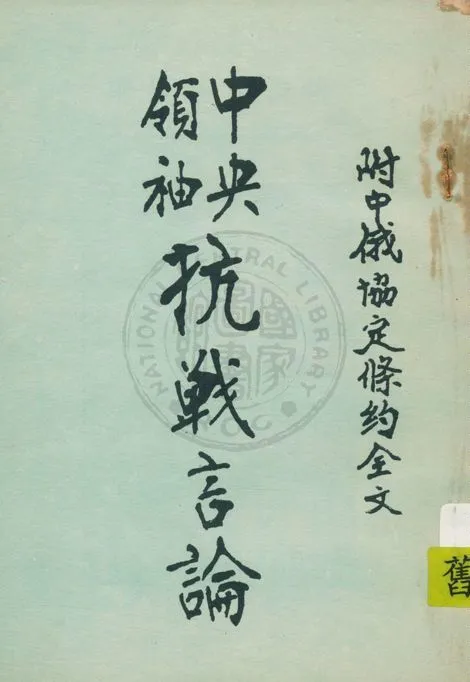 附中俄協定條约全文
中央領袖抗戰言論
NATIONAL CENTRAL LIBRARY
國家圖書館
舊